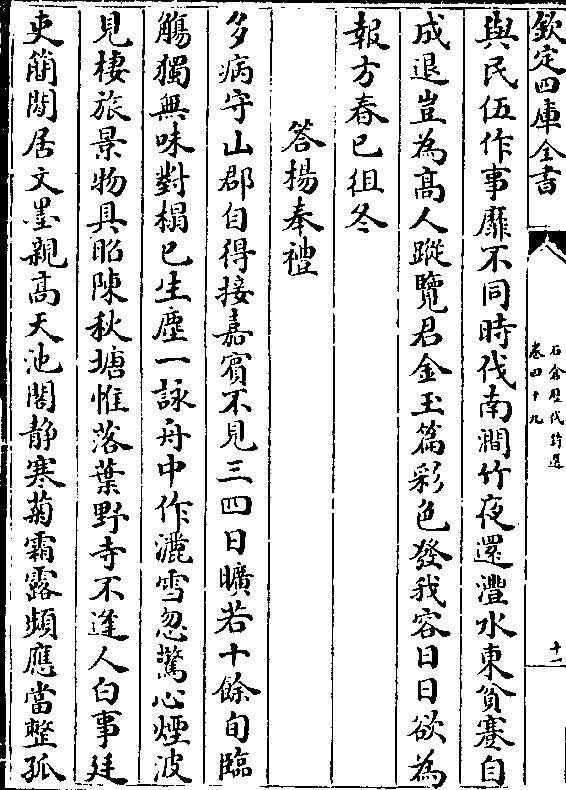 欽定四庫全書
石倉歷代詩選
卷四十九
十一
與民伍作事靡不同時伐南澗竹夜還灃水東貧蹇自
成退豈為高人蹤覽君金玉篇彩色發我容日日欲為
報方春已徂冬
答楊奉禮
多病守山郡自得接嘉賓不見三四日曠若十餘旬臨
觴獨無味對榻已生塵一詠舟中作灑雪忽驚心煙波
見棲旅景物具昭陳秋塘惟落葉野寺不逢人白事廷
吏簡閒居文墨親高天池閣静寒菊霜露頻應當整孤